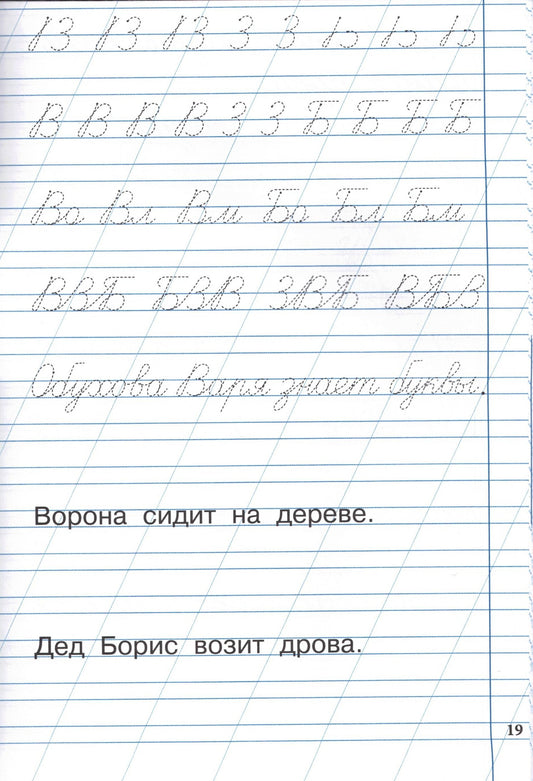 В В В З З Ь Ь Ь
В В В В З З Б Б Б Б
Во Вл Вм Бо Бл Бм
ВЗБ БЗВ ЗВБ ВБВ
Обухова Варя знает буквы.
Ворона сидит на дереве.
Дед Борис возит дрова.
19